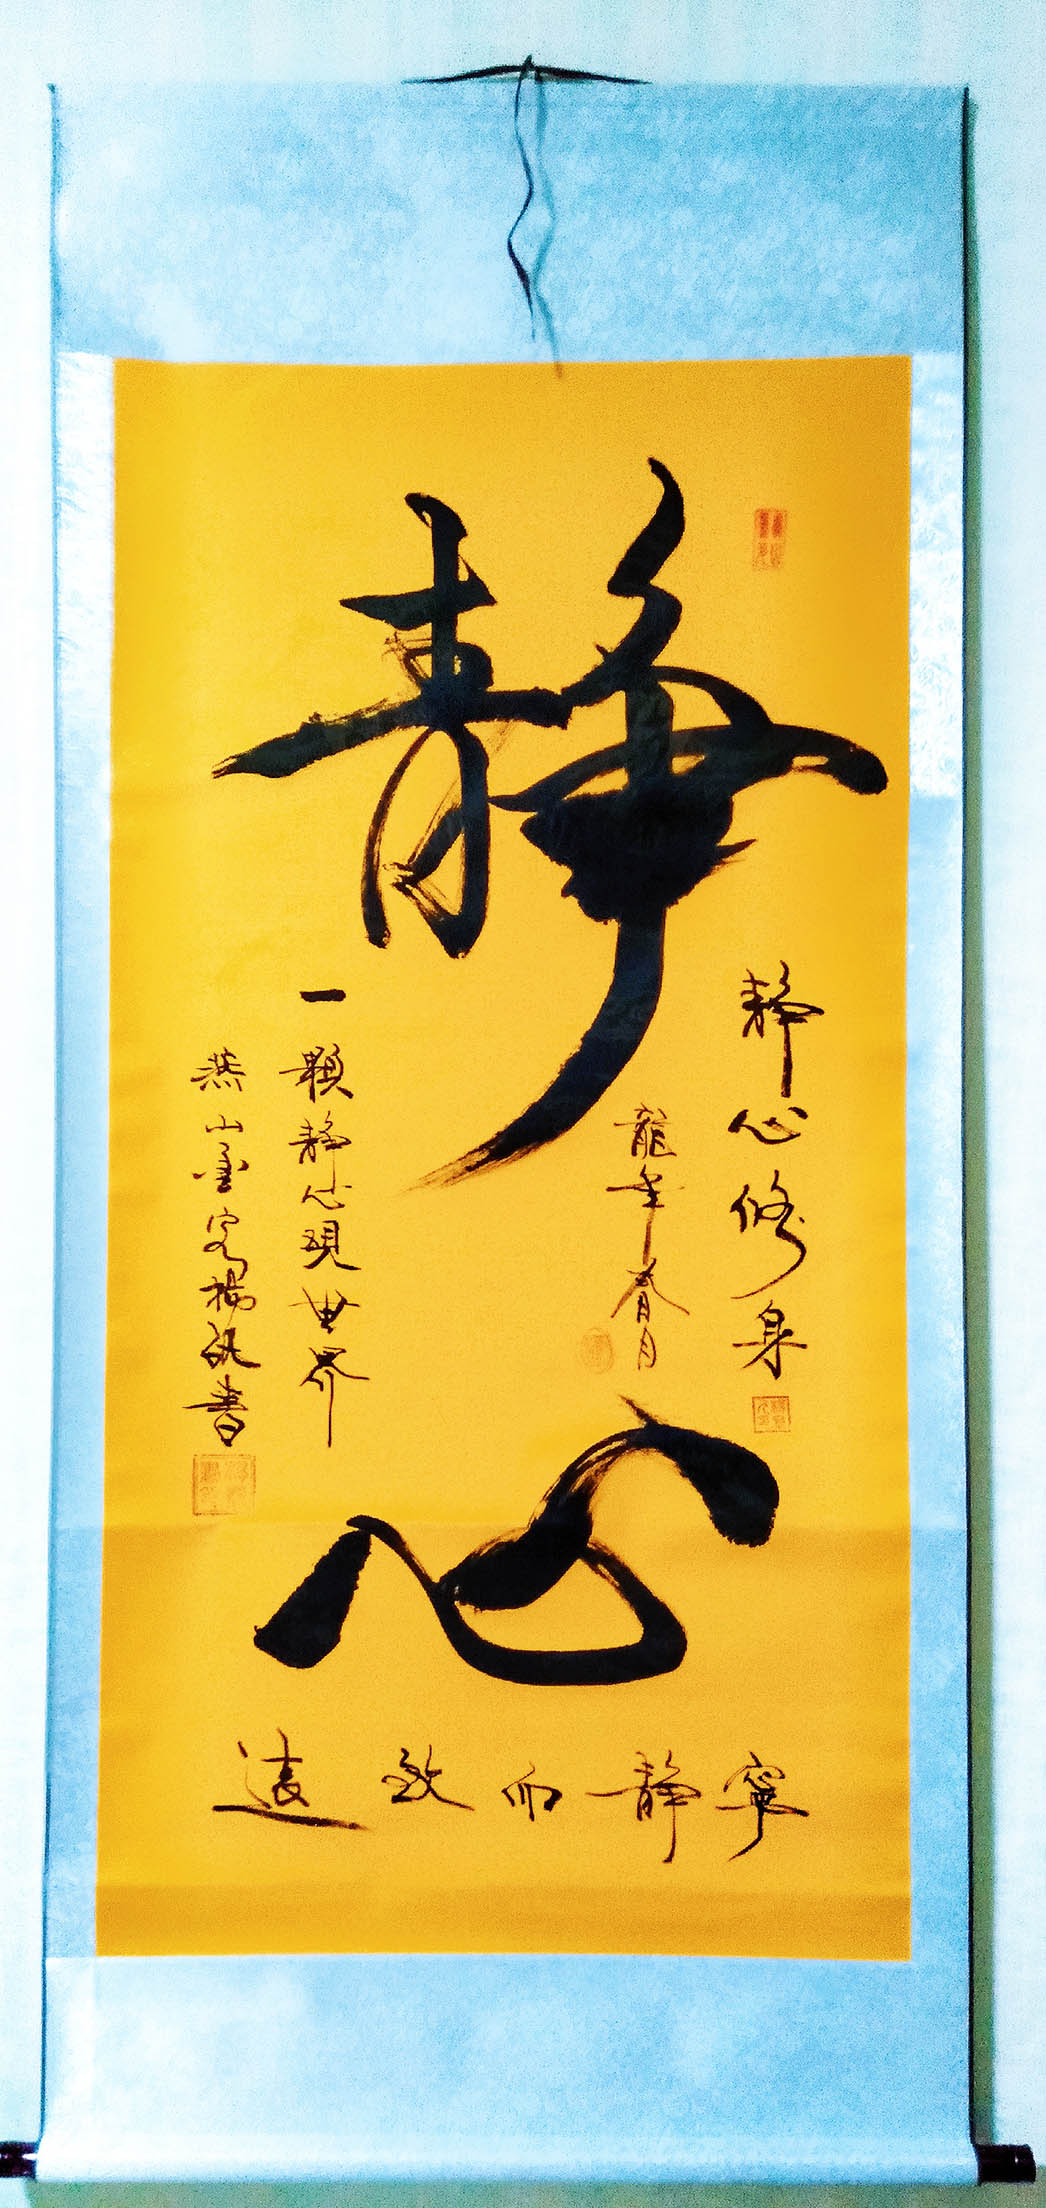 静心
静心修身
龍年春月
一顆静心現世界
燕山墨客楊
書
寧静而致遠